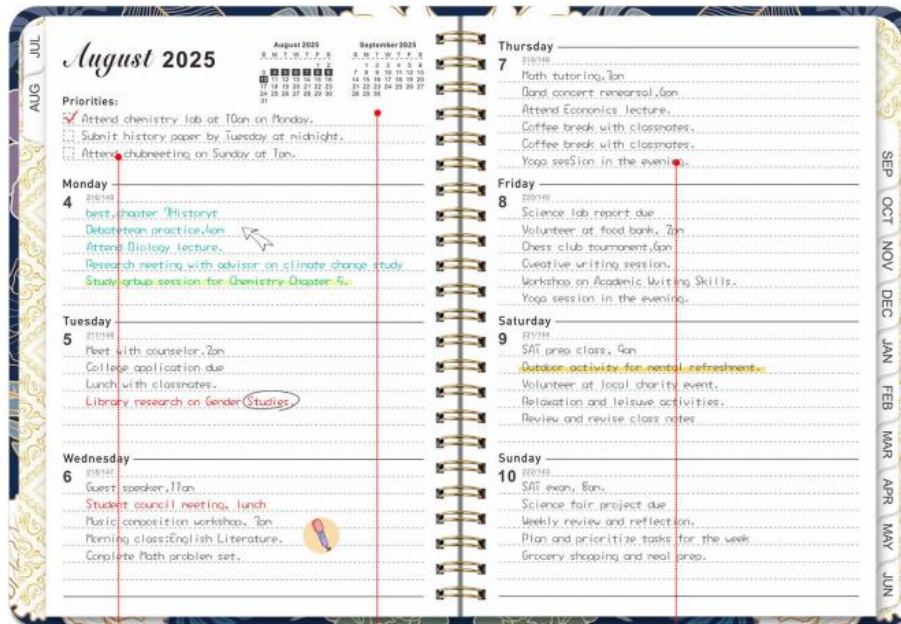 JUL
AUG
August 2025
August 2025
S M T W T F S
1 2
3 4 5 6 7 8 9
10 11 12 13 14 15 16
17 18 19 20 21 22 23
24 25 26 27 28 29 30
31
September 2025
S M T W T F S
1 2 3 4 5 6
7 8 9 10 11 12 13
14 15 16 17 18 19 20
21 22 23 24 25 26 27
28 29 30
Priorities:
Attend chemistry lab at 10am on Monday.
Submit history paper by Tuesday at midnight.
Attend chubmeeting on Sunday at 1pm.
Monday
4
216/149
best,chapter 7Historyt
Debateteam practice,4pm
Attend Biology lecture.
Research meeting with advisor on climate change study
Study group session for Chemistry Chapter 5.
Tuesday
5
217/148
Meet with counselor,2pm
College application due
Lunch with classmates.
Library research on Gender Studies
Wednesday
6
218/147
Guest speaker,11am
Student council meeting, lunch
Music composition workshop, 3pm
Morning class:English Literature.
Complete Math problem set.
Thursday
7
219/146
Math tutoring,3pm
Band concert rehearsal,6pm
Attend Economics lecture.
Coffee break with classmates.
Coffee break with classmates.
Yoga sesSion in the evening.
Friday
8
220/145
Science lab report due
Volunteer at food bank, 2pm
Chess club tournament,6pm
Creative writing session.
Workshop on Academic Writing Skills.
Yoga session in the evening.
Saturday
9
221/144
SAT prep class, 9am
Outdoor activity for mental refreshment.
Volunteer at local charity event.
Relaxation and leisure activities.
Review and revise class notes
Sunday
10
222/143
SAT exam, 8am.
Science fair project due
Weekly review and reflection.
Plan and prioritize tasks for the week
Grocery shopping and meal prep.
SEP
OCT
NOV
DEC
JAN
FEB
MAR
APR
MAY
JUN